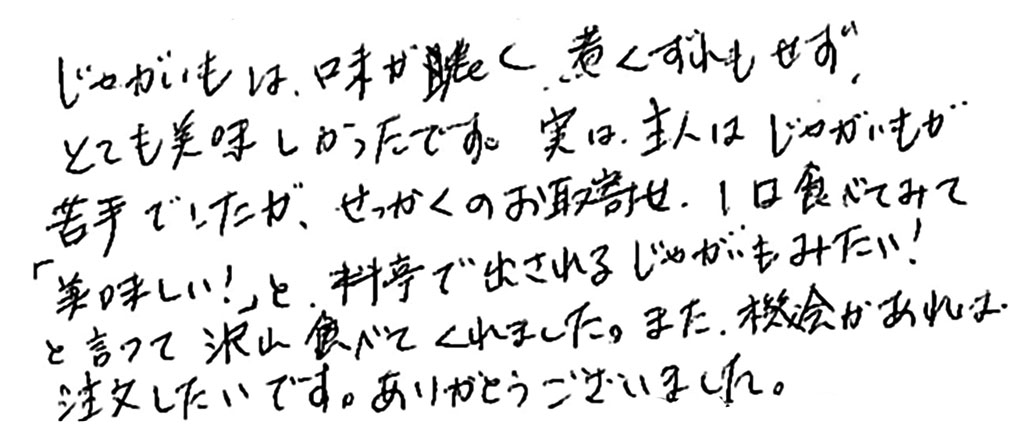 じゃがいもは、味が濃く、煮くずれもせず、
とても美味しかったです。実は、主人はじゃがいもが
苦手でしたが、せっかくのお取寄せ、1口食べてみて
「美味しい!」と、料亭で出されるじゃがいもみたい!
と言って沢山食べてくれました。また、機会があれば
注文したいです。ありがとうございました。